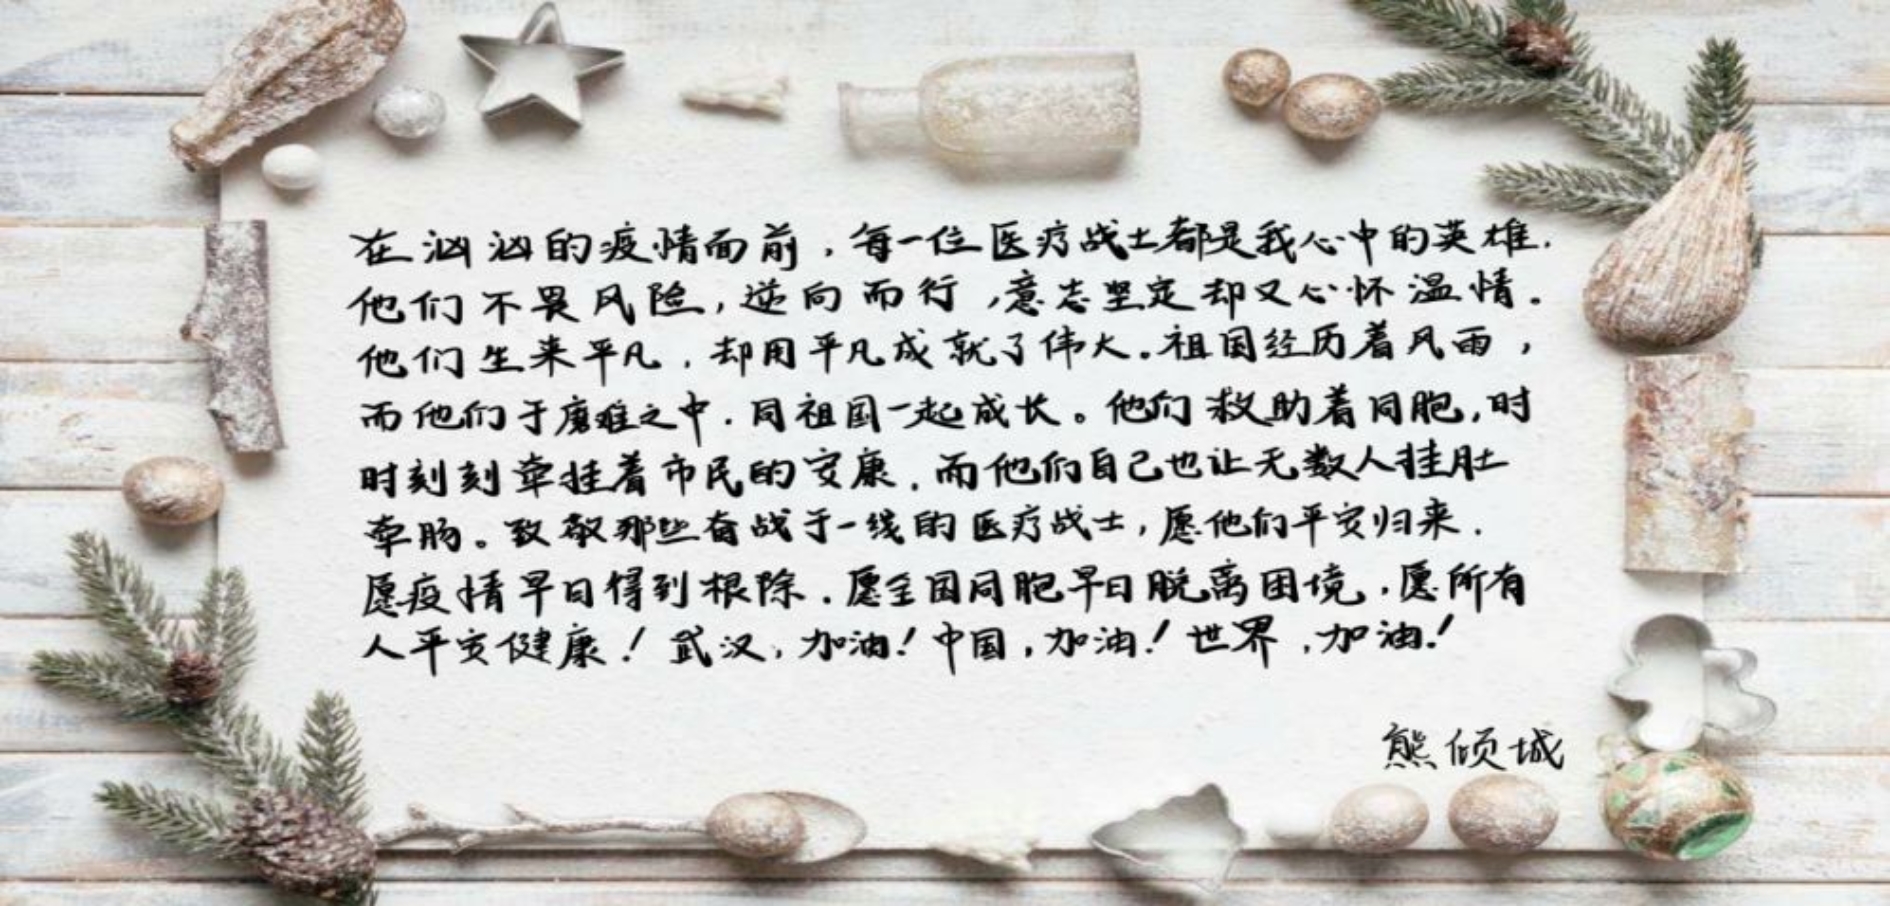 在汹汹的疫情面前，每一位医疗战士都是我心中的英雄.
他们不畏风险，逆向而行，意志坚定却又心怀温情。
他们生来平凡，却用平凡成就了伟大。祖国经历着风雨，
而他们于磨难之中.同祖国一起成长。他们救助着同胞，时
时刻刻牵挂着市民的安康.而他们自己也让无数人挂肚
牵肠。致敬那些奋战于一线的医疗战士，愿他们平安归来.
愿疫情早日得到根除.愿全国同胞早日脱离困境，愿所有
人平安健康！武汉，加油！中国，加油！世界，加油！
熊倾城